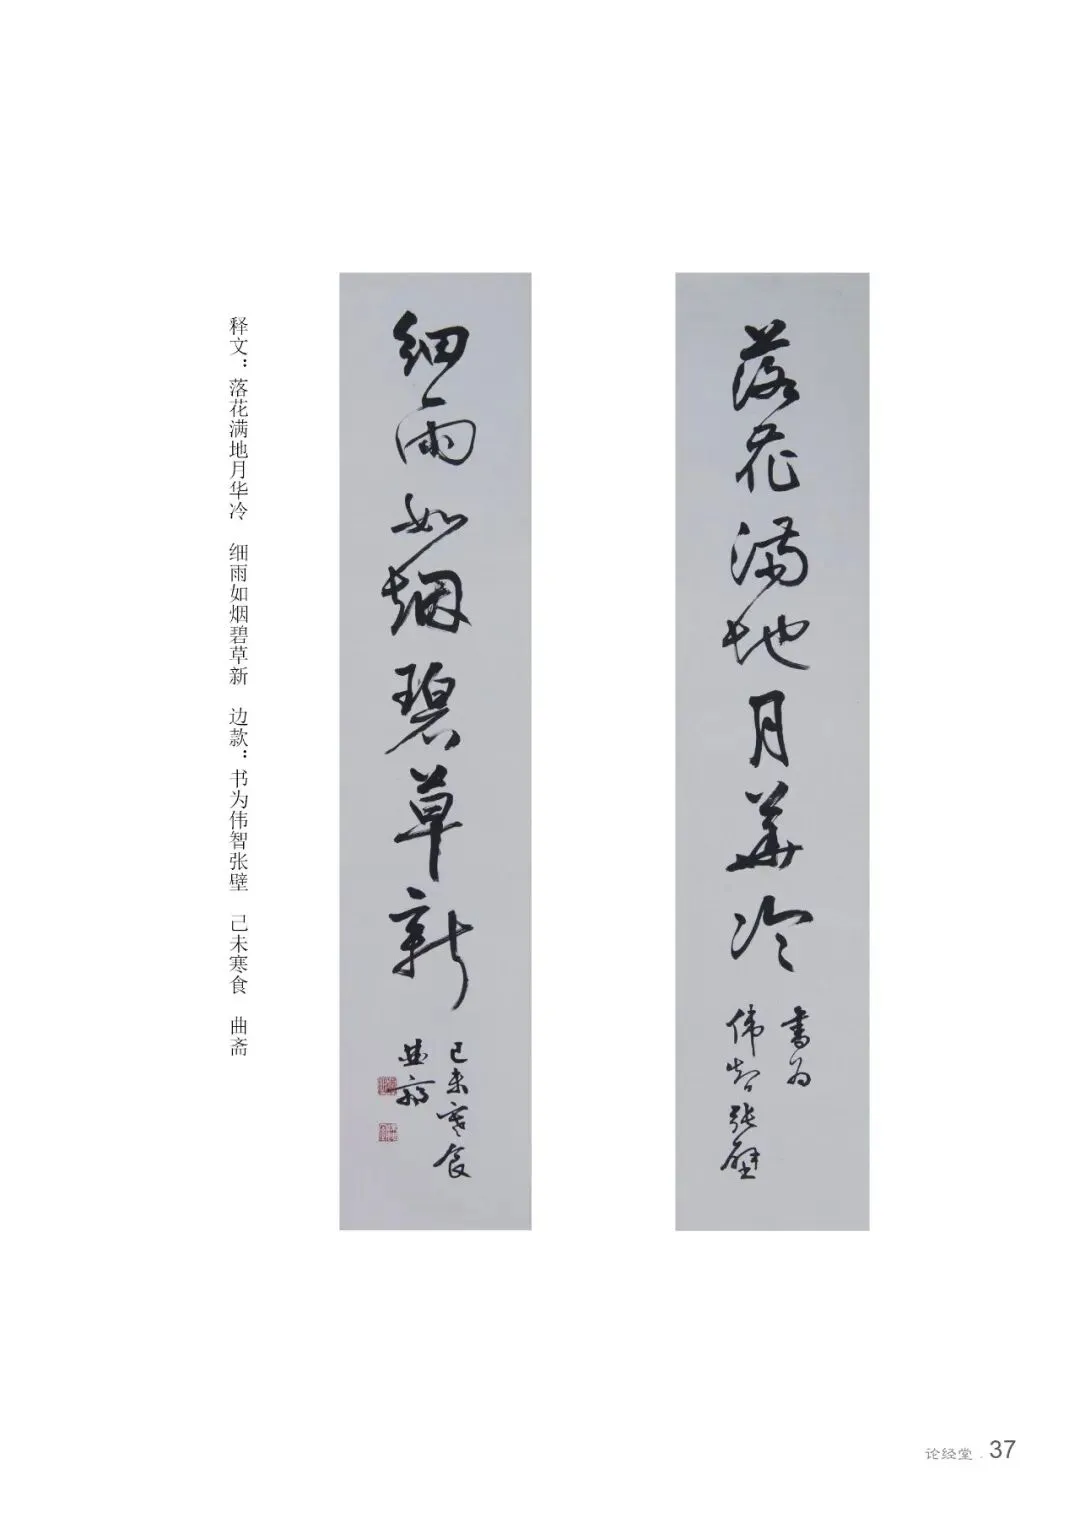 落花满地月华冷
书为
伟智张壁
细雨如烟碧草新
己未寒食
曲斋
释文：落花满地月华冷　细雨如烟碧草新　边款：书为伟智张壁　己未寒食　曲斋
论经堂 . 37